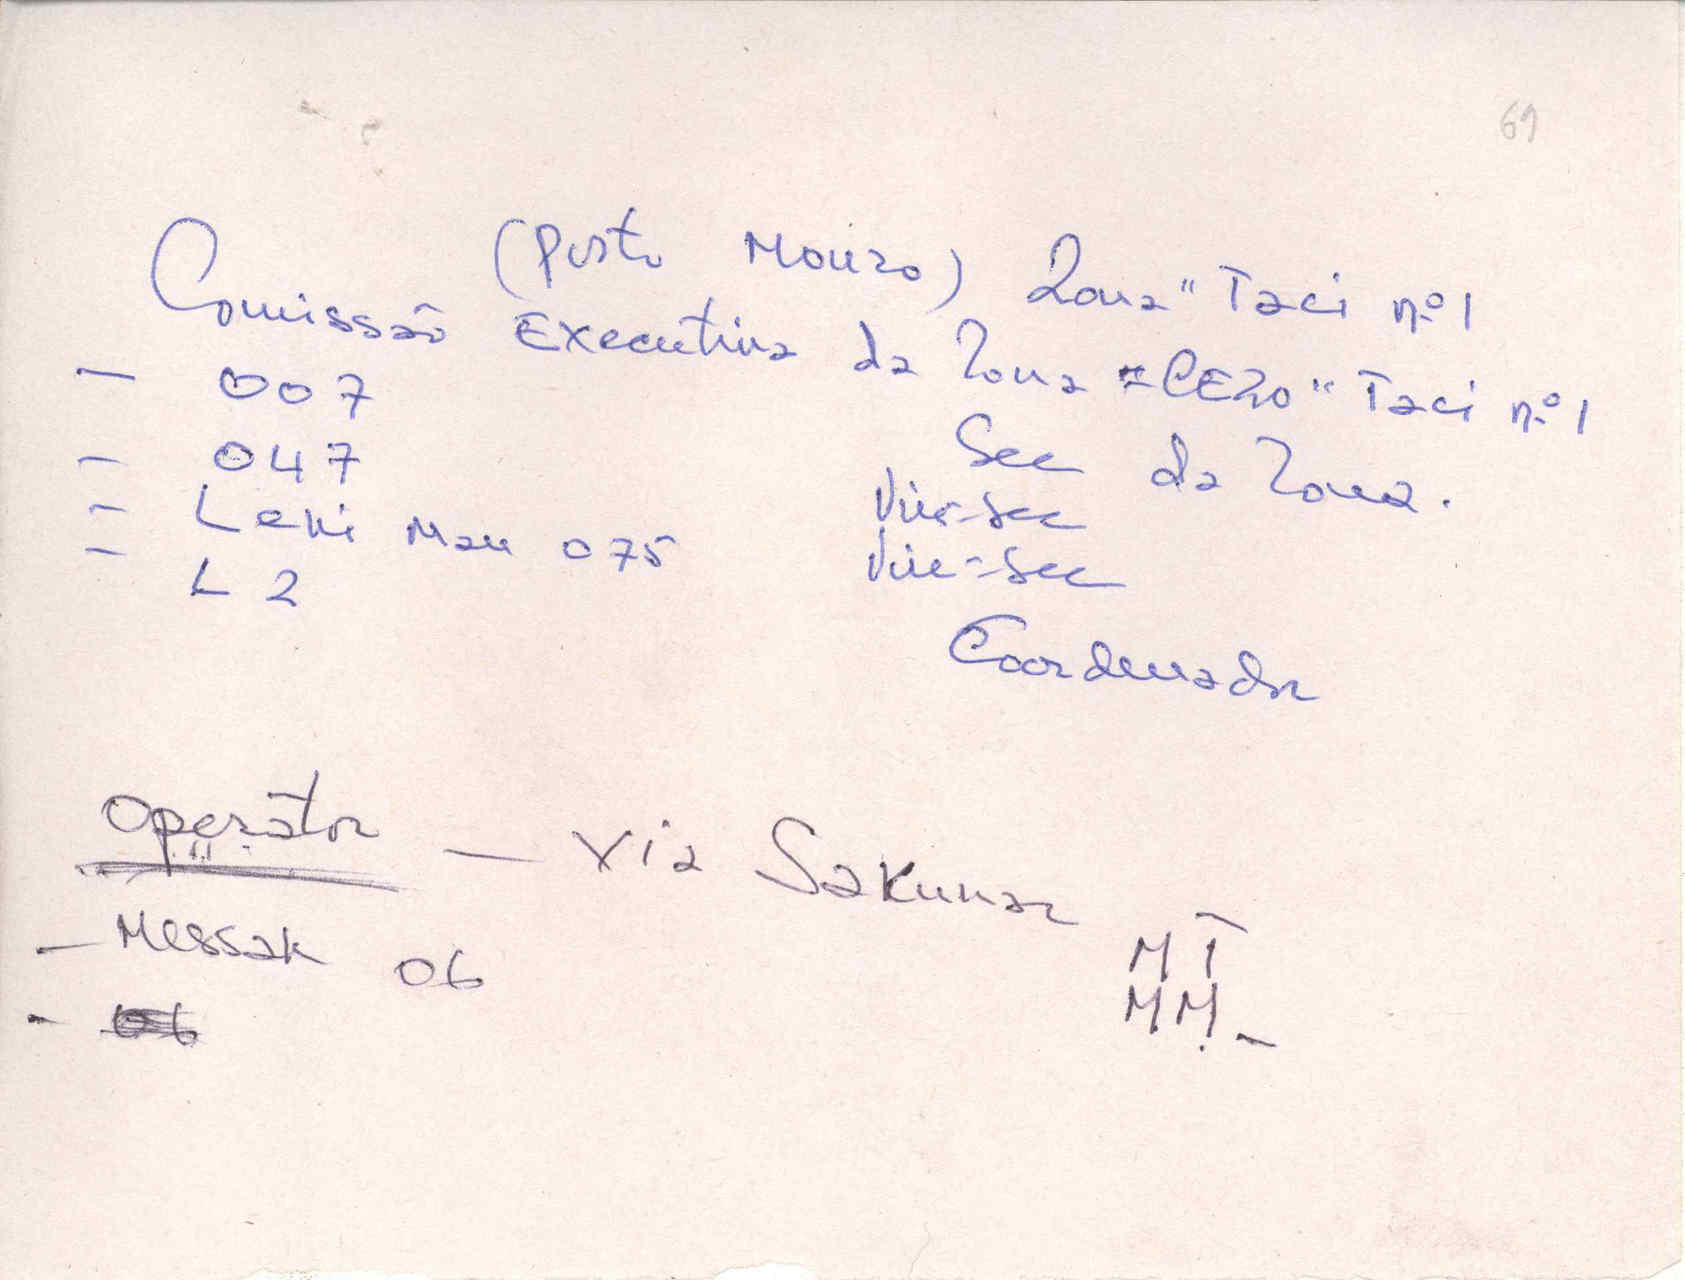 69
(Posto Mouzo) Zona "Taci nº 1
Comissão Executiva da Zona "CEZO" Taci nº 1
- 007 Sec da Zona.
- 047 Vice-Sec
- Leki Mau 075 Vice-Sec
- L2 Coordenador
Operator - Via Sakunar
- Messak 06 MT
- 06 MM -